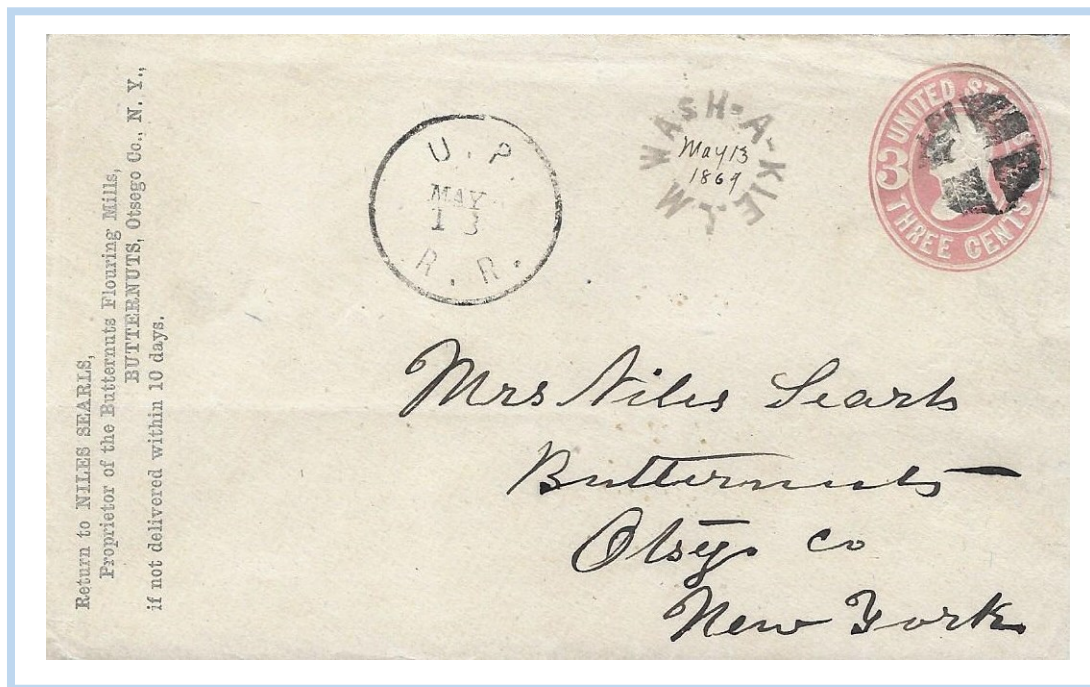 Return to NILES SEARLS,
Proprietor of the Butternuts Flouring Mills,
BUTTERNUTS, Otsego Co., N. Y.,
if not delivered within 10 days.
U. P.
MAY
13
R. R.
WASH-A-KIE
May 13
1869
UNITED STATES
3
THREE CENTS
Mrs Niles Searls
Butternuts
Otsego Co
New York